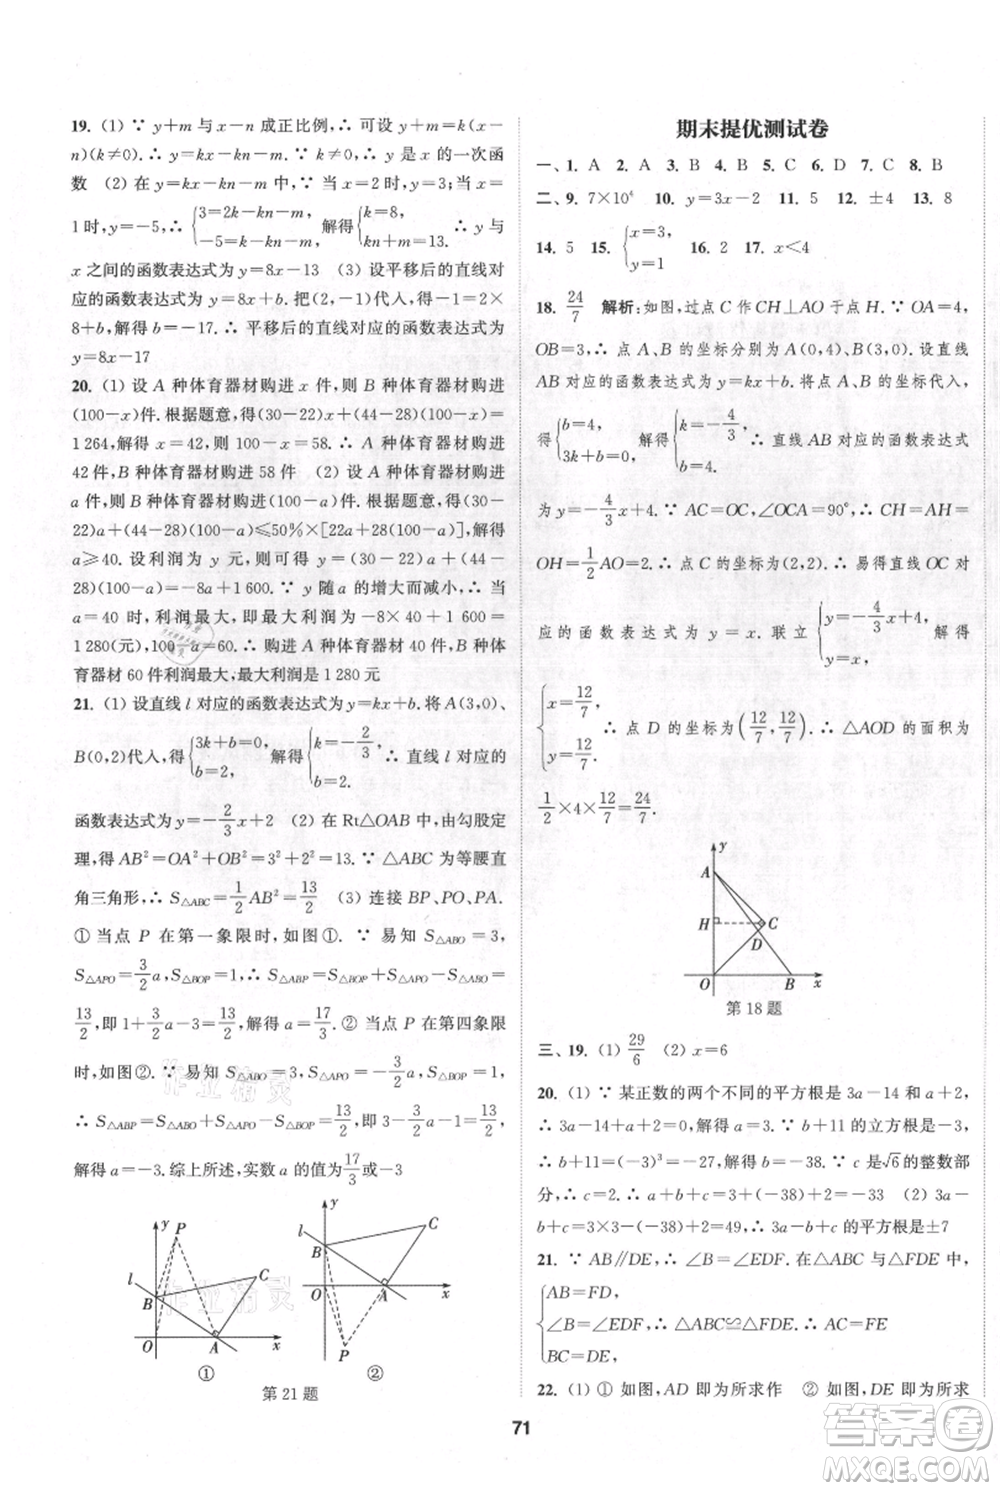 19. (1) ∵ y+m 与 x-n 成正比例,∴ 可设 y+m=k(x-
n)(k≠0).∴ y=kx-kn-m.∴ y 是 x 的一次函
数 (2) 在 y=kx-kn-m 中,∵ 当 x=2 时,y=3;当 x=
1 时,y=-5,∴ {3=2k-kn-m, -5=k-kn-m, 解得 {k=8, kn+m=13. ∴ y 与
x 之间的函数表达式为 y=8x-13 (3) 设平移后的直线对
应的函数表达式为 y=8x+b.把(2,-1)代入,得-1=2×
8+b.∴ b=-17.∴ 平移后的直线对应的函数表达式为
y=8x-17
20. (1) 设 A 种体育器材购进 x 件,则 B 种体育器材购进
(100-x)件.根据题意,得(30-22)x+(44-28)(100-x)=
1 264,解得 x=42,则 100-x=58.∴ A 种体育器材购进
42 件,B 种体育器材购进 58 件 (2) 设 A 种体育器材购进
a 件,则 B 种体育器材购进(100-a)件.根据题意,得(30-
22)a+(44-28)(100-a)≤50%×[22a+28(100-a)],解得
a≥40.设利润为 y 元,则 y=(30-22)a+(44-28)(100-
a)=-8a+1 600.∵ y 随 a 的增大而减小,∴ 当 a=
40 时,利润最大,即最大利润是-8×40+1 600=
1 280(元),100-a=60.∴ 购进 A 种体育器材 40 件,B 种体
育器材 60 件利润最大,最大利润是 1 280 元
21. (1) 设直线 l 对应的函数表达式为 y=kx+b.将 A(3,0)、
B(0,2)代入,得 {3k+b=0, b=2, 解得 {k=-2/3, b=2. ∴ 直线 l 对应的
函数表达式为 y=-2/3x+2 (2) 在 Rt△OAB 中,由勾股定
理,得 AB²=OA²+OB²=13.∵ △ABC 为等腰直
角三角形,∴ S△ABC=1/2AB²=13/2 (3) 连接 BP、PO、PA.
① 当点 P 在第一象限时,如图①.∵ 易知 S△ABO=3,
S△APO=3/2a,S△BOP=1,∴ S△ABP=S△BOP+S△APO-S△ABO=
13/2,即 1+3/2a-3=13/2,解得 a=17/3.② 当点 P 在第四象限
时,如图②.∵ 易知 S△ABO=3,S△APO=-3/2a,S△BOP=1,
∴ S△ABP=S△ABO+S△APO-S△BOP=13/2,即 3-3/2a-1=13/2,
解得 a=-3.综上所述,实数 a 的值为17/3或-3
l y P C B O A x ①
l y C B O A x P ②
第 21 题
期末提优测试卷
一、1. A 2. A 3. A 4. B 5. C 6. D 7. C 8. B
二、9. 7×10⁴ 10. y=3x-2 11. 5 12. ±4 13. 8
14. 5 15. {x=3, y=1 16. 2 17. x<4
18. 24/7 解析:如图,过点 C 作 CH⊥AO 于点 H.∵ OA=4,
OB=3,∴ 点 A、B 的坐标分别为 A(0,4)、B(3,0).设直线
AB 对应的函数表达式为 y=kx+b.将点 A、B 的坐标代入,
得 {b=4, 3k+b=0, 解得 {k=-4/3, b=4. ∴ 直线 AB 对应的函数表达式
为 y=-4/3x+4.∵ AC=OC,∠OCA=90°,∴ CH=AH=
OH=1/2AO=2.∴ 点 C 的坐标为(2,2).∴ 易得直线 OC 对
应的函数表达式为 y=x.联立 {y=-4/3x+4, y=x, 解得
{x=12/7, y=12/7. ∴ 点 D 的坐标为(12/7,12/7).∴ △AOD 的面积为
1/2×4×12/7=24/7.
y A H C D O B x
第 18 题
三、19. (1) 29/6 (2) x=6
20. (1) ∵ 某正数的两个不同的平方根是 3a-14 和 a+2,
∴ 3a-14+a+2=0,解得 a=3.∵ b+11 的立方根是-3,
∴ b+11=(-3)³=-27,解得 b=-38.∵ c 是√6的整数部
分,∴ c=2.∴ a+b+c=3+(-38)+2=-33 (2) 3a-
b+c=3×3-(-38)+2=49,∴ 3a-b+c 的平方根是±7
21. ∵ AB∥DE,∴ ∠B=∠EDF.在△ABC 与△FDE 中,
{AB=FD, ∠B=∠EDF, BC=DE, ∴ △ABC≌△FDE.∴ AC=FE
22. (1) ① 如图,AD 即为所求作 ② 如图,DE 即为所求
71
答案圈
MXQE.COM